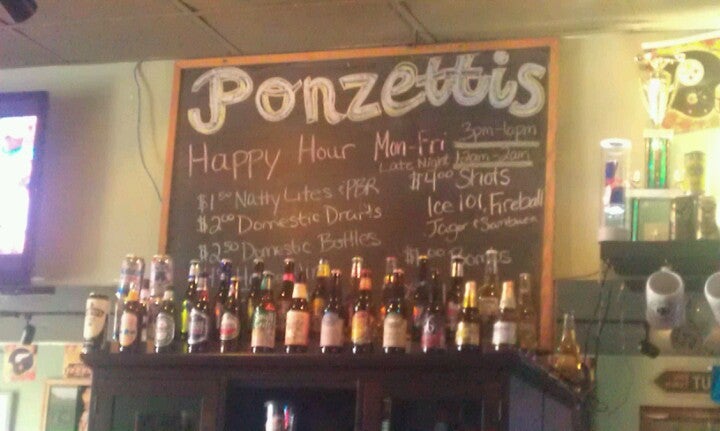 Ponzettis
Happy Hour Mon-Fri 3pm-6pm
Late Night 12am-2am
$1.50 Natty Lites & PBR
$2.00 Domestic Drafts
$2.50 Domestic Bottles
$4.00 Shots
Ice 101, Fireball
Jager & Sambuca
Bombs
TU